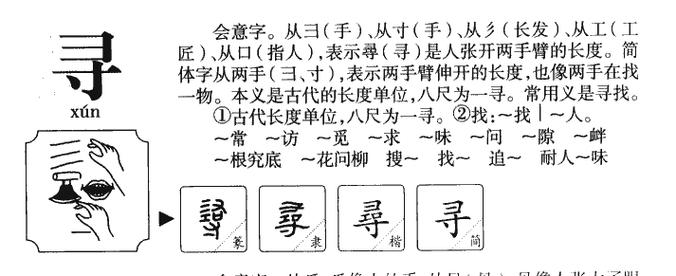 寻
xún
会意字。从彐(手)、从寸(手)、从彡(长发)、从工(工
匠)、从口(指人),表示尋(寻)是人张开两手臂的长度。简
体字从两手(彐、寸),表示两手臂伸开的长度,也像两手在找
一物。本义是古代的长度单位,八尺为一寻。常用义是寻找。
①古代长度单位,八尺为一寻。②找:~找|~人。
~常 ~访 ~觅 ~求 ~味 ~问 ~隙 ~衅
~根究底 ~花问柳 搜~ 找~ 追~ 耐人~味
篆 隶 尋 楷 寻 简